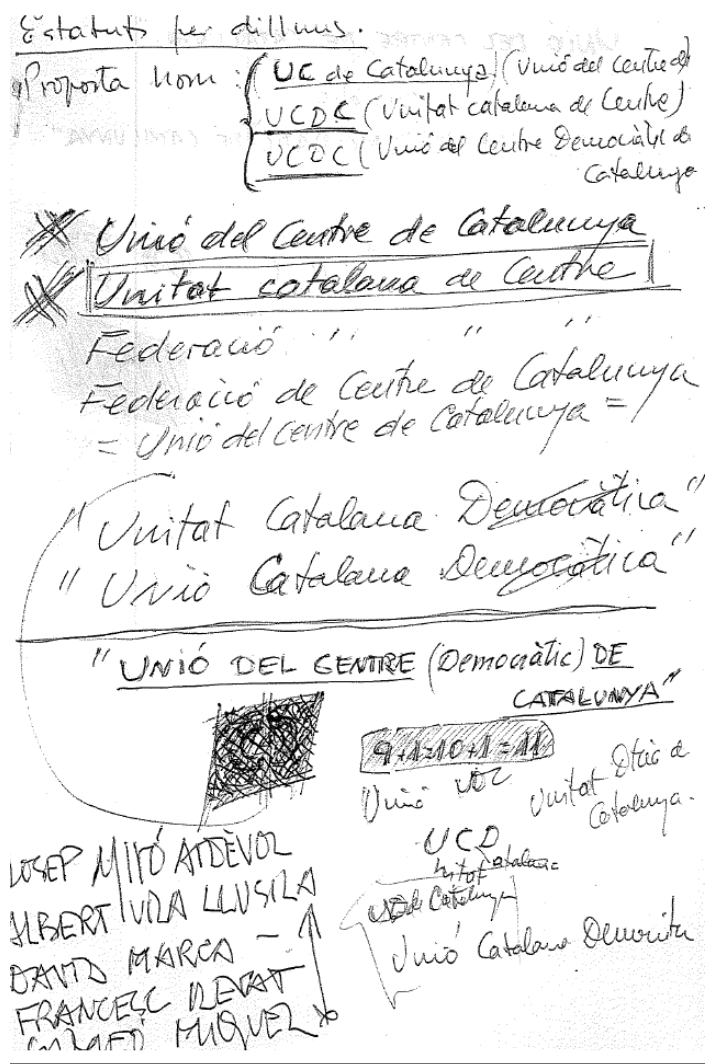 Estatuts per dilluns.
Proposta nom : UC de Catalunya (Unió del Centre d
UCDC (Unitat catalana de Centre)
UCDC (Unió del Centre Democràtic de
Catalunya
Unió del Centre de Catalunya
Unitat catalana de Centre
Federació " " "
Federació de Centre de Catalunya
= Unió del Centre de Catalunya =
"Unitat Catalana Democràtica"
"Unió Catalana Democràtica"
"UNIÓ DEL CENTRE (Democràtic) DE
CATALUNYA"
9+1=10+1=11
Unió UDC Unitat de
Catalunya.
UCD
Catalana
de Catalunya
Unió Catalana
JOSEP MIRÓ ARDÈVOL
ALBERT VILA LLUSILA
DAVID MARCA
FRANCESC
MIQUEL